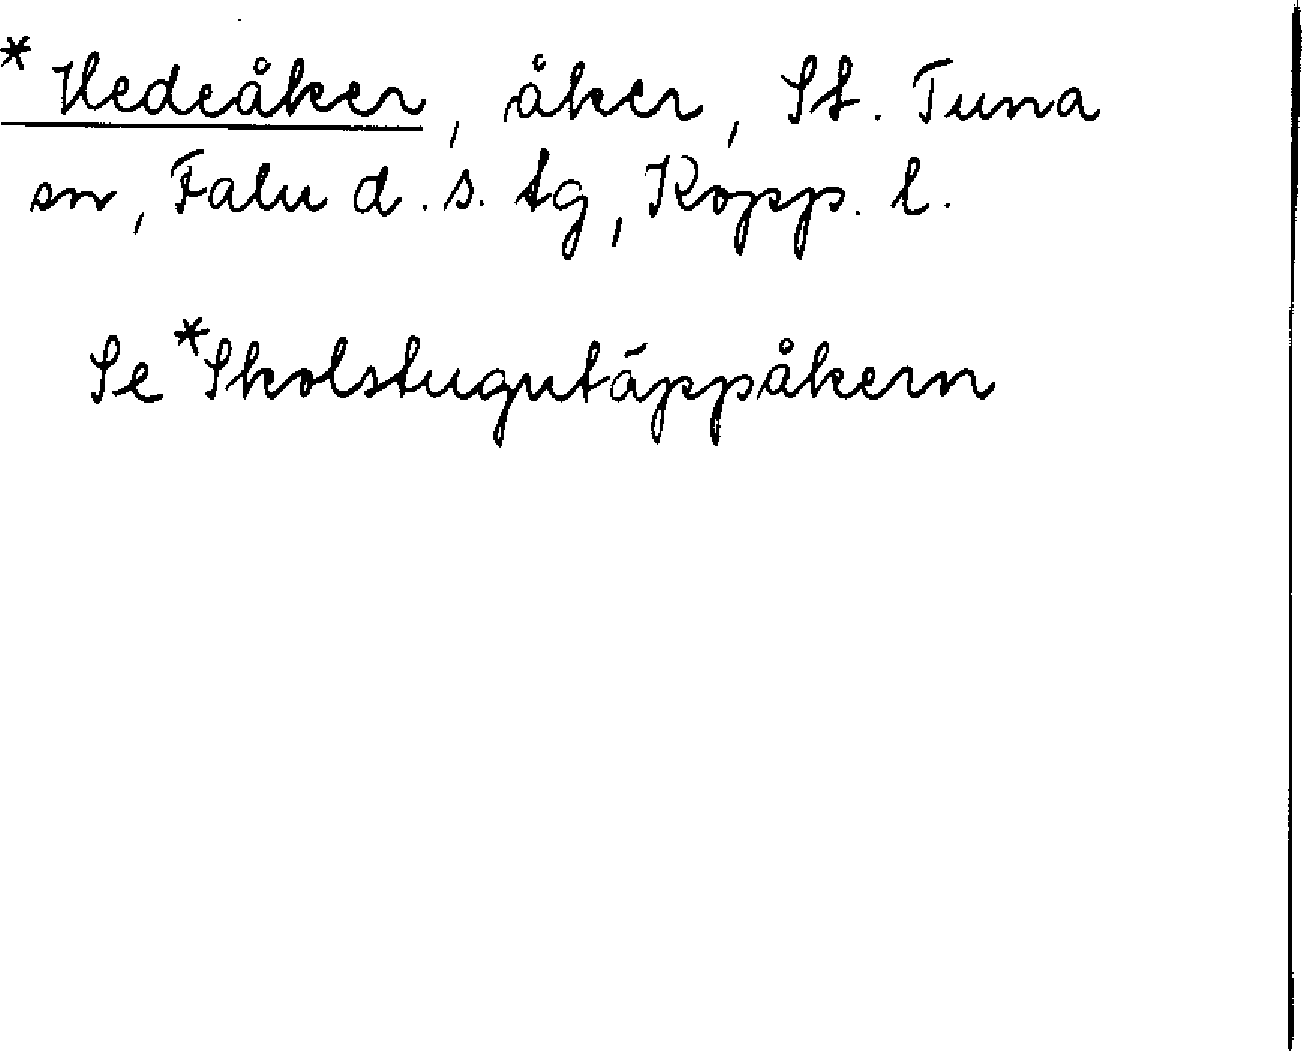 *Hedeåker, åker, St. Tuna
sn, Falu d. s. tg, Kopp. l.
Se *Skolstugutäppåkern